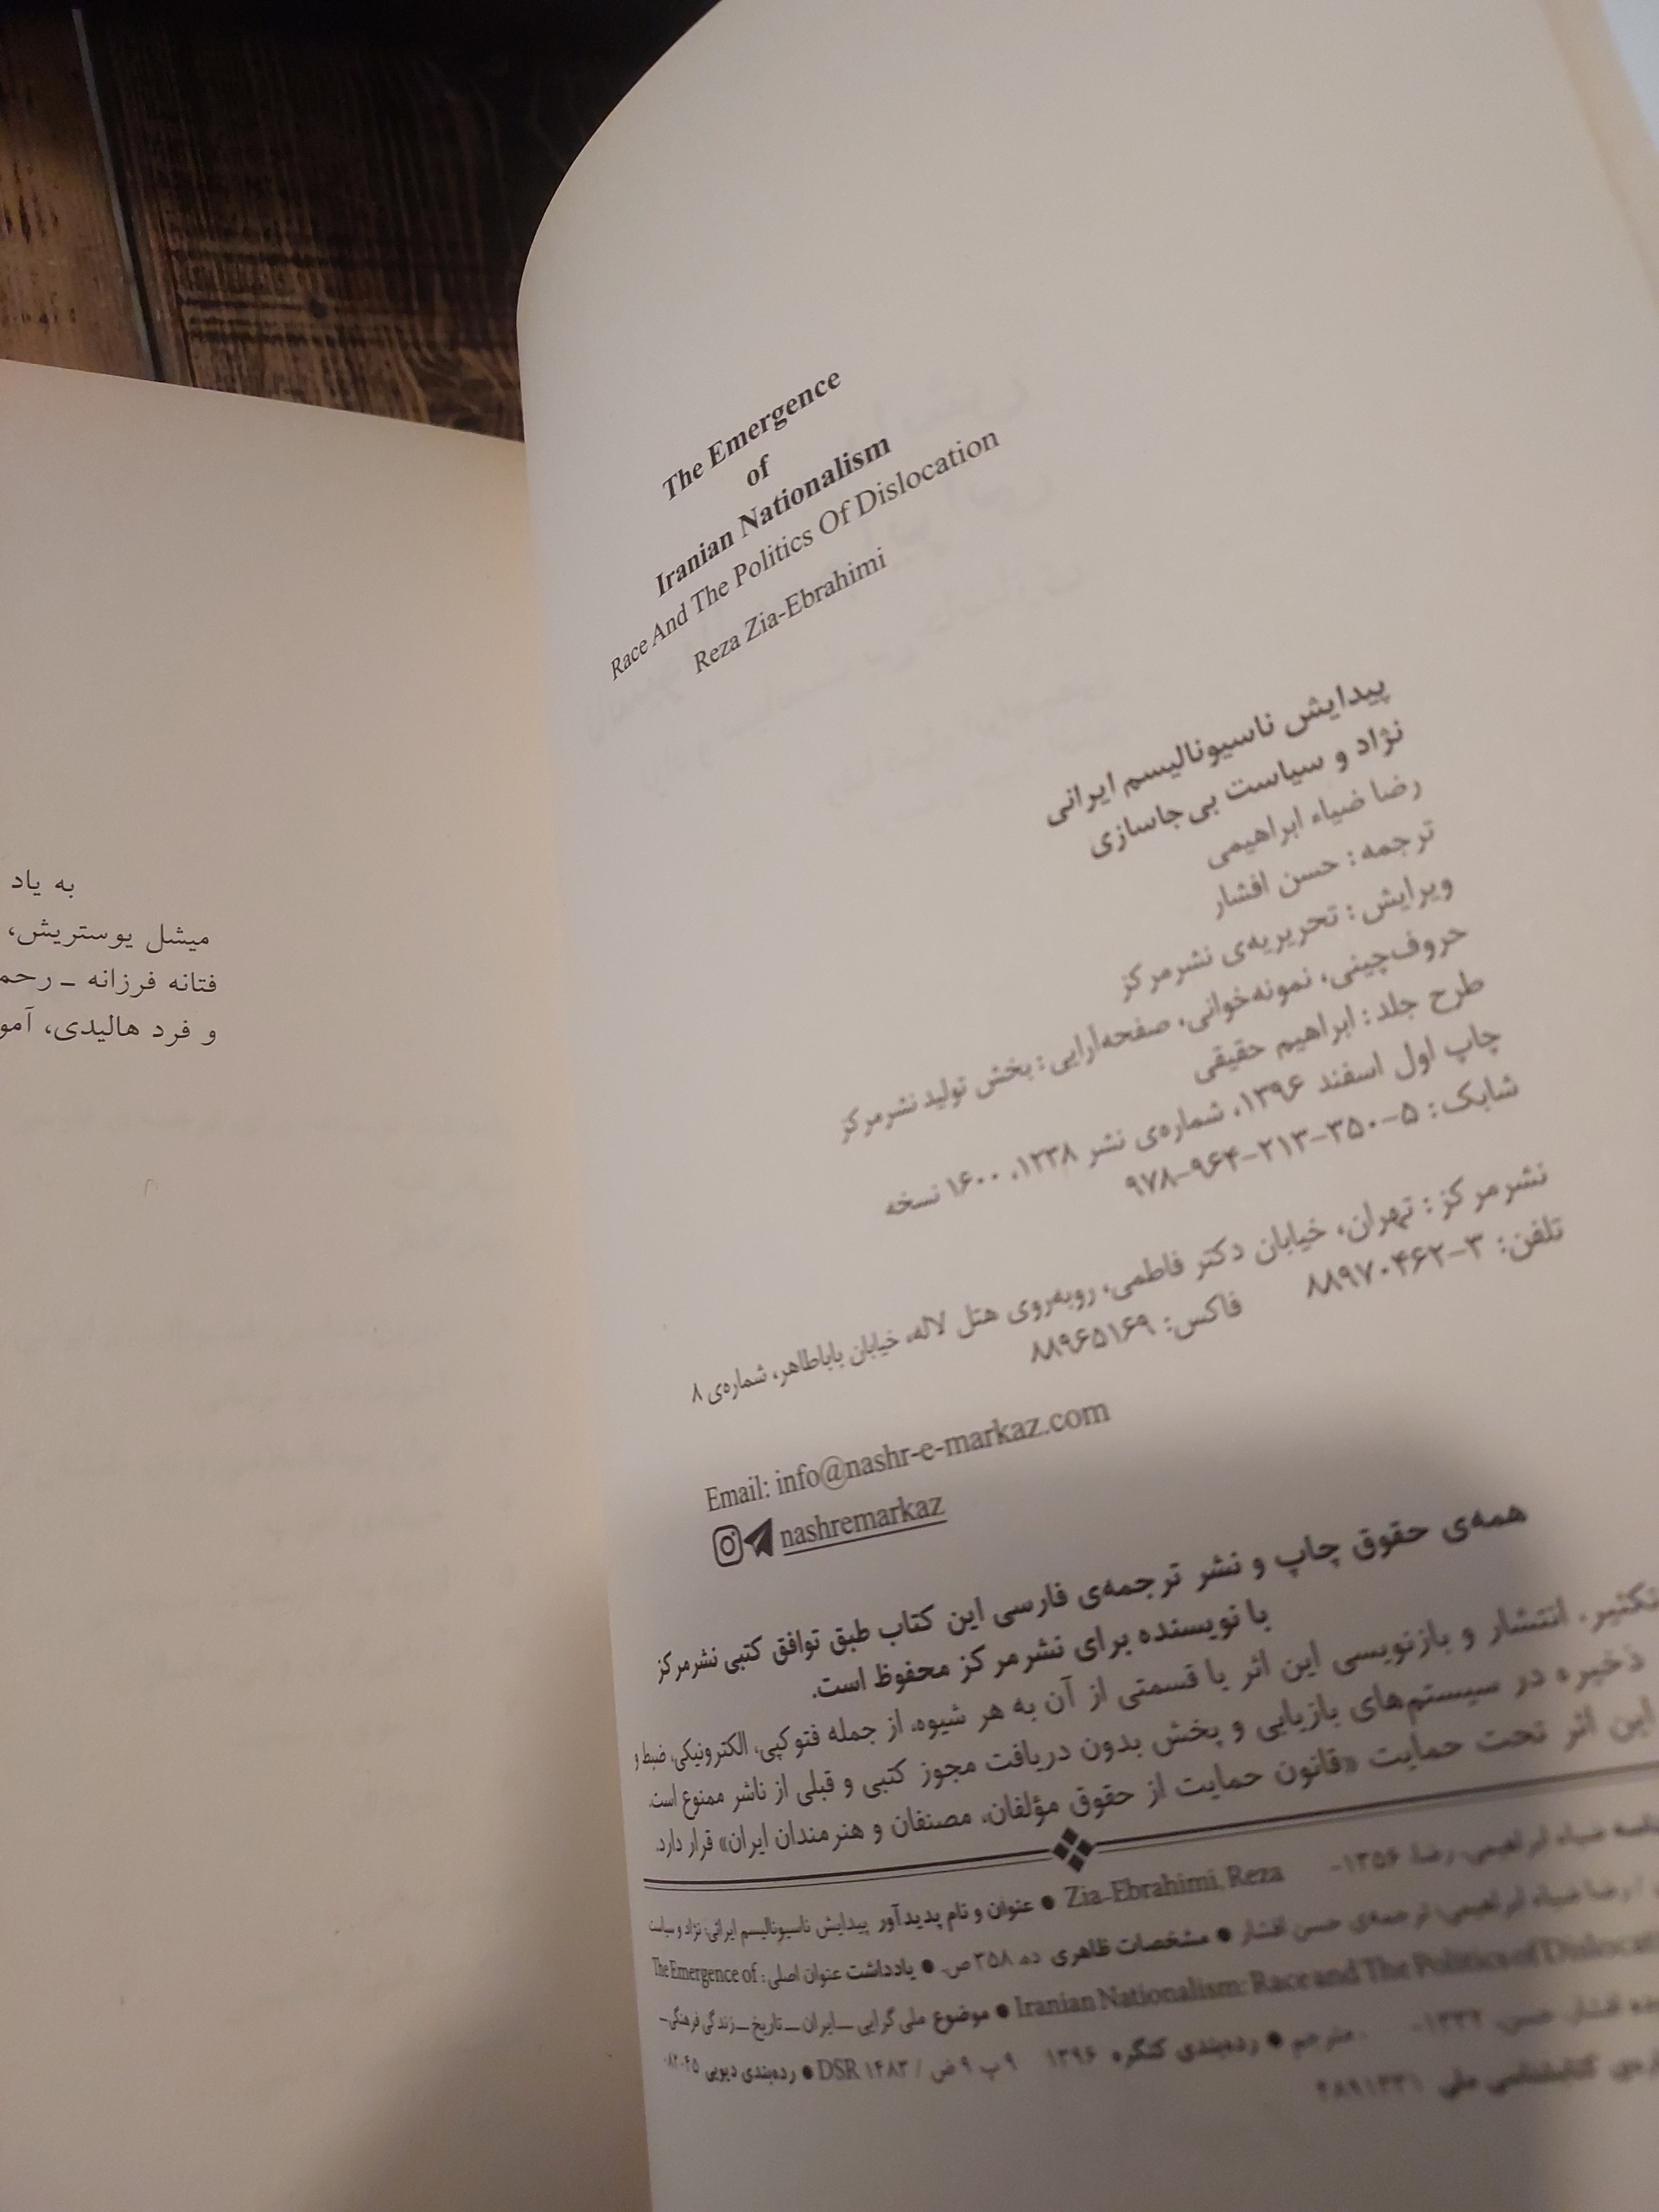 The Emergence
of
Iranian Nationalism
Race And The Politics Of Dislocation
Reza Zia-Ebrahimi
پیدایش ناسیونالیسم ایرانی
نژاد و سیاست بی‌جاسازی
رضا ضیاء ابراهیمی
ترجمه: حسن افشار
ویرایش: تحریریه‌ی نشرمرکز
حروف‌چینی، نمونه‌خوانی، صفحه‌آرایی: بخش تولید نشرمرکز
طرح جلد: ابراهیم حقیقی
چاپ اول اسفند ۱۳۹۶، شماره‌ی نشر ۱۲۳۸، ۱۶۰۰ نسخه
شابک: ۵-۳۵۰-۲۱۳-۹۶۴-۹۷۸
نشرمرکز: تهران، خیابان دکتر فاطمی، روبه‌روی هتل لاله، خیابان باباطاهر، شماره‌ی ۸
تلفن: ۳-۸۸۹۷۰۴۶۲ فاکس: ۸۸۹۶۵۱۶۹
Email: info@nashr-e-markaz.com
nashremarkaz
همه‌ی حقوق چاپ و نشر ترجمه‌ی فارسی این کتاب طبق توافق کتبی نشرمرکز
با نویسنده برای نشرمرکز محفوظ است.
تکثیر، انتشار و بازنویسی این اثر یا قسمتی از آن به هر شیوه، از جمله فتوکپی، الکترونیکی، ضبط و
ذخیره در سیستم‌های بازیابی و پخش بدون دریافت مجوز کتبی و قبلی از ناشر ممنوع است.
این اثر تحت حمایت «قانون حمایت از حقوق مؤلفان، مصنفان و هنرمندان ایران» قرار دارد.
ضیاء ابراهیمی، رضا، ۱۳۵۶- Zia-Ebrahimi, Reza ● عنوان و نام پدیدآور پیدایش ناسیونالیسم ایرانی: نژاد و سیاست
/ رضا ضیاء ابراهیمی؛ ترجمه‌ی حسن افشار ● مشخصات ظاهری ده، ۳۵۸ ص. ● یادداشت عنوان اصلی: The Emergence of
Iranian Nationalism: Race and The Politics of ● موضوع ملی گرایی ـ ایران ـ تاریخ ـ زندگی فرهنگی ـ
افشار، حسن، ۱۳۳۲- ، مترجم ● رده‌بندی کنگره ۱۳۹۶ ۹ پ ۹ ض / DSR ۱۴۸۳ ● رده‌بندی دیویی
کتابشناسی ملی
به یاد
میشل یوستریش،
فتانه فرزانه ـ
و فرد هالیدی،